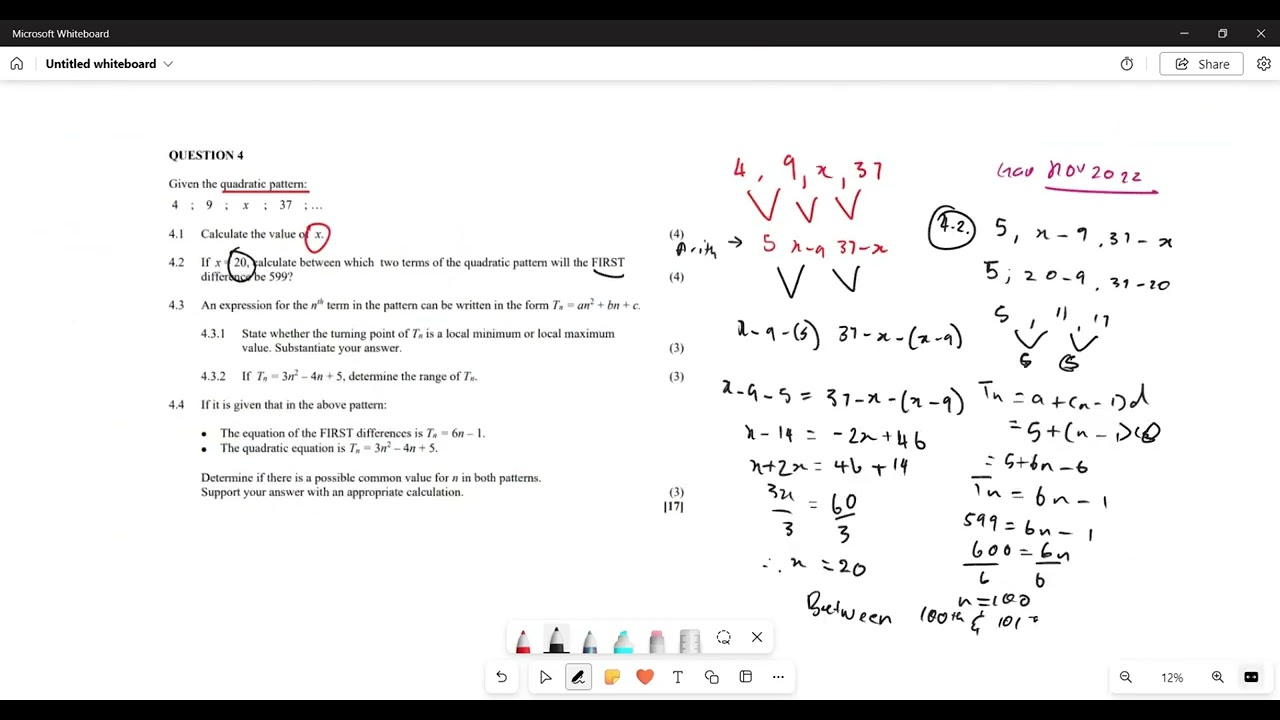 Microsoft Whiteboard
Untitled whiteboard
Share
QUESTION 4
Given the quadratic pattern:
4 ; 9 ; x ; 37 ; ...
4.1 Calculate the value of x.
(4)
4.2 If x = 20, calculate between which two terms of the quadratic pattern will the FIRST
difference be 599?
(4)
4.3 An expression for the nᵗʰ term in the pattern can be written in the form Tₙ = an² + bn + c.
4.3.1 State whether the turning point of Tₙ is a local minimum or local maximum
value. Substantiate your answer.
(3)
4.3.2 If Tₙ = 3n² – 4n + 5, determine the range of Tₙ.
(3)
4.4 If it is given that in the above pattern:
• The equation of the FIRST differences is Tₙ = 6n – 1.
• The quadratic equation is Tₙ = 3n² – 4n + 5.
Determine if there is a possible common value for n in both patterns.
Support your answer with an appropriate calculation.
(3)
[17]
4, 9, x, 37
Arith → 5 x-9 37-x
x-9-(5) 37-x-(x-9)
x-9-5 = 37-x-(x-9)
x-14 = -2x+46
x+2x = 46+14
3x = 60
3 3
∴ x = 20
Between 100th & 101
Nov 2022
4.2. 5, x-9, 37-x
5; 20-9, 37-20
5, 11, 17
6 6
Tn = a+(n-1)d
= 5+(n-1)(6)
= 5+6n-6
Tn = 6n-1
599 = 6n-1
600 = 6n
6 6
n=100
12%